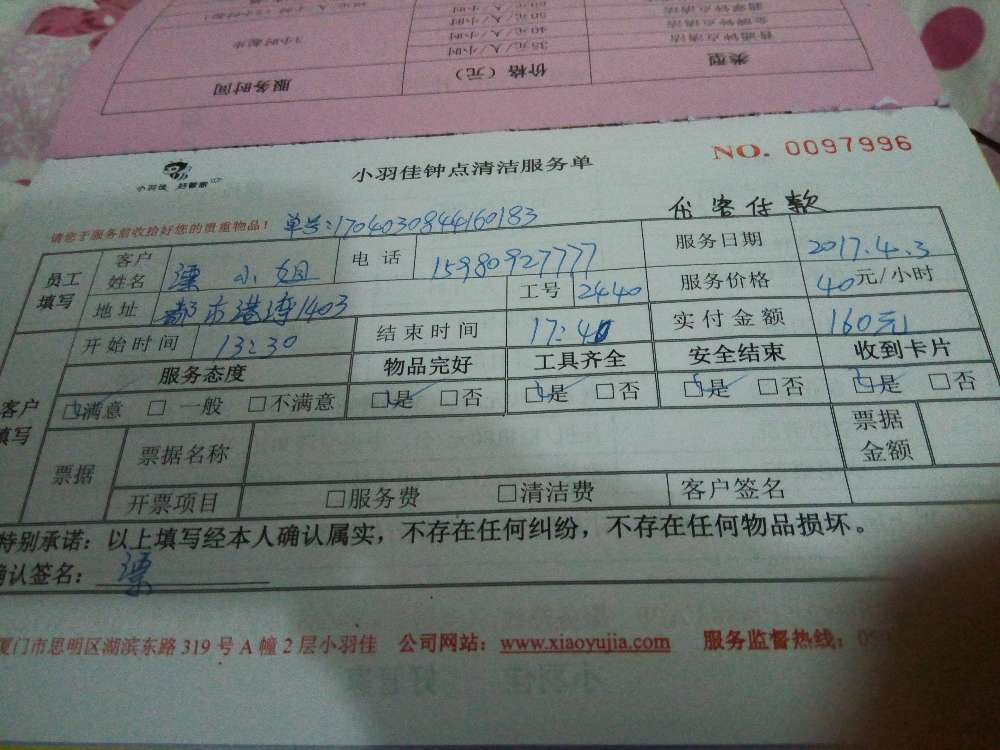 服务时间 价格（元） 类型
1小时起步 35元/人/小时 普通钟点清洁
40元/人/小时 金牌钟点清洁
50元/人/小时
小羽佳 好管家
小羽佳钟点清洁服务单
NO. 0097996
请您于服务前收拾好您的贵重物品！
单号:1704030844160183
代客付款
员工填写 客户姓名 小姐 电话 15980927777 服务日期 2017.4.3
地址 都市港湾1403 工号 2440 服务价格 40元/小时
客户填写 开始时间 13:30 结束时间 17:40 实付金额 160元
服务态度 物品完好 工具齐全 安全结束 收到卡片
□满意 □一般 □不满意 □是 □否 □是 □否 □是 □否 □是 □否
票据 票据名称 票据金额
开票项目 □服务费 □清洁费 客户签名
特别承诺：以上填写经本人确认属实，不存在任何纠纷，不存在任何物品损坏。
确认签名：
厦门市思明区湖滨东路 319 号 A 幢 2 层小羽佳 公司网站：www.xiaoyujia.com 服务监督热线：